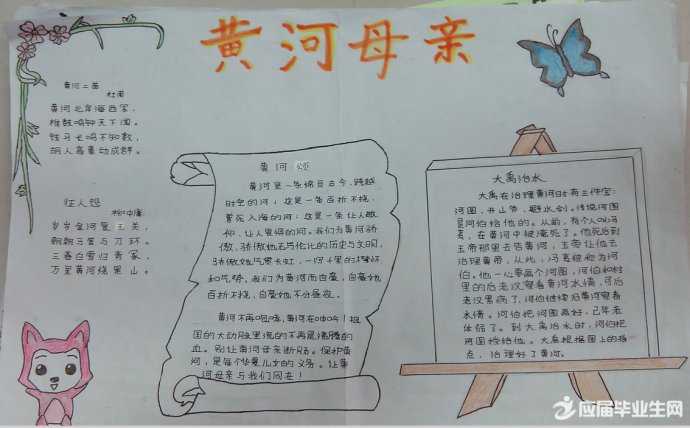 黄河母亲
黄河二首
杜甫
黄河北岸海西军,
椎鼓鸣钟天下闻。
铁马长鸣不知数,
胡人高鼻动成群。
征人怨
柳中庸
岁岁金河复玉关,
朝朝马策与刀环。
三春白雪归青冢,
万里黄河绕黑山。
黄河颂
黄河是一条绵亘古今,跨越
时空的河;这是一条百折不挠,
奔流入海的河;这是一条让人敬
仰,让人思绪的河。我们为黄河骄
傲,骄傲她无与伦比的历史与文明,
骄傲她气贯长虹,一泻千里的
和气势,我们为黄河而自豪,自豪她
百折不挠,自豪她不分昼夜。
黄河不再咆哮,黄河在呻吟!祖
国的大动脉里流的不再是沸腾的
血。别让黄河母亲断肠。保护黄
河,是每个华夏儿女的义务。让黄
河母亲与我们同在!
大禹治水
大禹在治理黄河时有三件宝:
河图,开山斧,避水剑。传说河图
是河伯给他的。从前,有个人叫冯
夷,在黄河中被淹死了。他死后到
玉帝那里去告黄河,玉帝让他去
治理黄帝,从此,冯夷便称为河
伯。他一心要画个河图,河伯和村
里的后老汉察看黄河水情,可后
老汉累病了,河伯继续沿黄河察看
水情。河伯把河图画好,已年老
体弱了。到大禹治水时,河伯把
河图授给他。大禹根据图上的指
点,治理好了黄河。
应届毕业生网